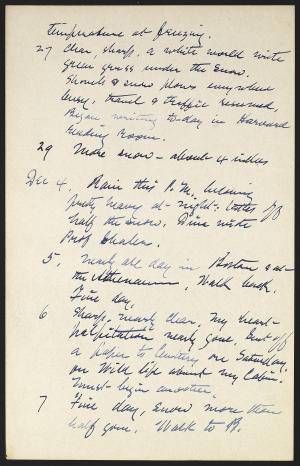 temperature at freezing.
27 Clear, sharp, a white world with
green grass under the snow.
Shovels & snow plows everywhere
busy, travel & traffic resumed,
Began writing to-day in Harvard
Reading Room.
29 More snow - about 4 inches
Dec 4. Rain this P.M. becoming
pretty heavy at night: takes off
half the snow. Dine with
Prof Shaler.
5, nearly all day in Boston & at
the Athenaeum, Walk back.
Fine day.
6 Sharp, nearly clear, my heart-
palpitation nearly gone. Sent off
a paper to Century on Saturday,
on Wild life about my Cabin.
Must begin another.
7 Fine day, snow more than
half gone. Walk to B.